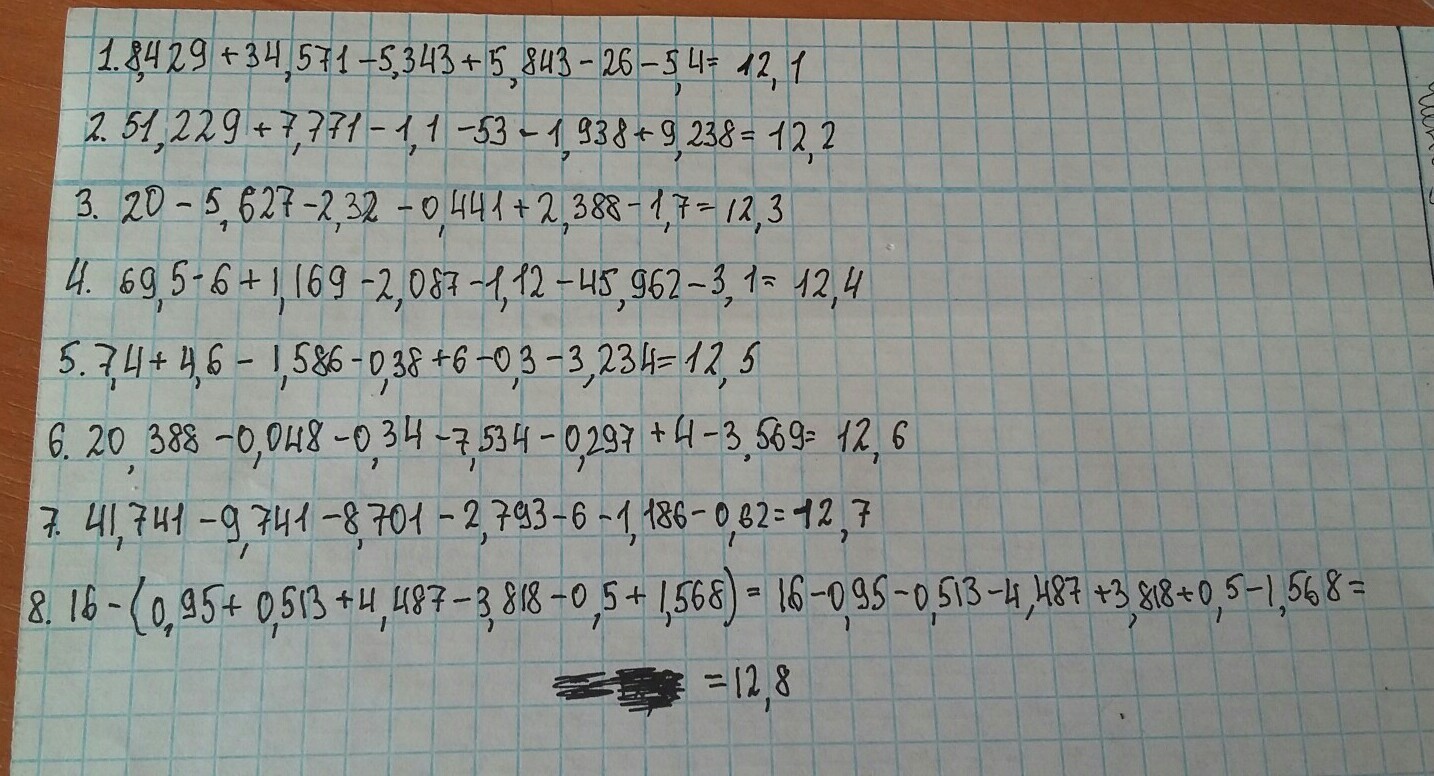 1. 8,429 + 34,571 - 5,343 + 5,843 - 26 - 5,4 = 12,1
2. 51,229 + 7,771 - 1,1 - 53 - 1,938 + 9,238 = 12,2
3. 20 - 5,627 - 2,32 - 0,441 + 2,388 - 1,7 = 12,3
4. 69,5 - 6 + 1,169 - 2,087 - 1,12 - 45,962 - 3,1 = 12,4
5. 7,4 + 4,6 - 1,586 - 0,38 + 6 - 0,3 - 3,234 = 12,5
6. 20,388 - 0,048 - 0,34 - 7,534 - 0,297 + 4 - 3,569 = 12,6
7. 41,741 - 9,741 - 8,701 - 2,793 - 6 - 1,186 - 0,62 = 12,7
8. 16 - (0,95 + 0,513 + 4,487 - 3,818 - 0,5 + 1,568) = 16 - 0,95 - 0,513 - 4,487 + 3,818 + 0,5 - 1,568 =
= 12,8